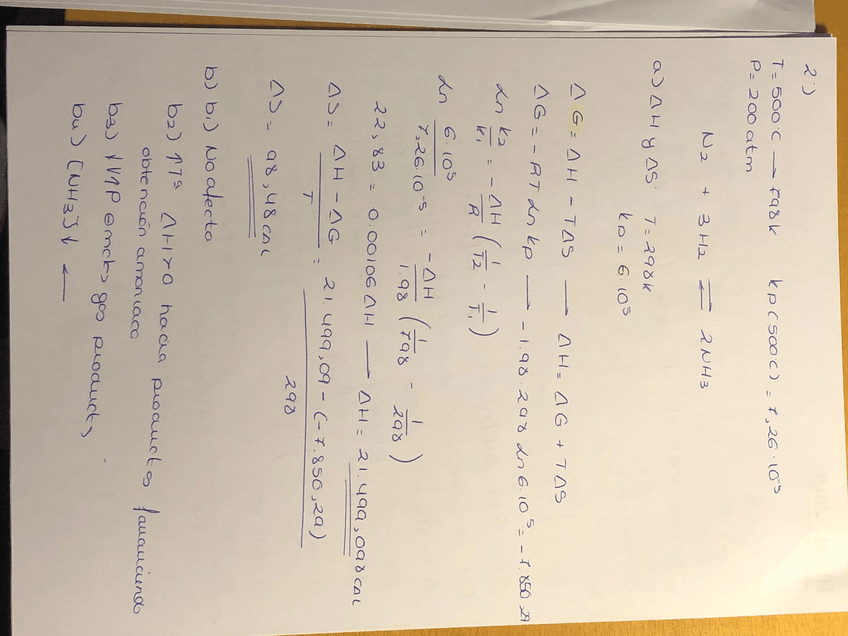 2.)
T = 500 C → 798k kp (500C) = 7,26·10⁻⁵
P = 200 atm
N₂ + 3H₂ ⇌ 2NH₃
a) ΔH y ΔS· T = 298k
kp = 6 10⁵
ΔG = ΔH - TΔS — ΔH = ΔG + TΔS
ΔG = -RT ln kp → -1.98·298 ln 6 10⁵ = -7.850 29
ln k₂/k₁ = -ΔH/R (1/T₂ - 1/T₁)
ln 6·10⁵/7,26·10⁻⁵ = -ΔH/1.98 (1/798 - 1/298)
22,83 = 0.00106ΔH — ΔH = 21.499,098 cal
ΔS = ΔH - ΔG/T = 21.499,09 - (-7.850,29)/298
ΔS = 98,48 cal
b) b₁) No afecta
b₂) ↑Tª ΔH>0 hacia productos favoreciendo
obtención amoniaco
b₃) ↓V↑P ⊖ moles gas products
b₄) [NH₃]↓ ←